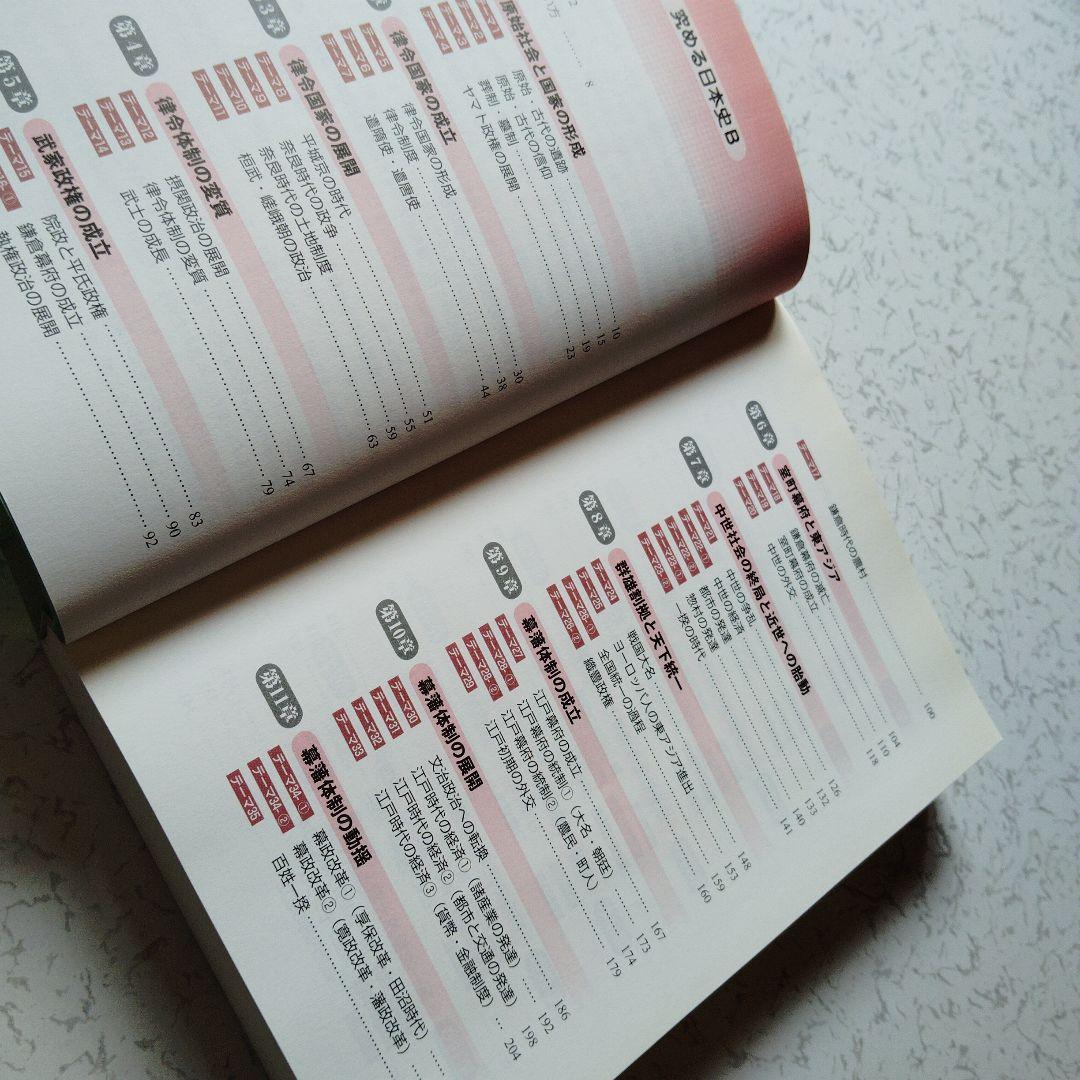 究める日本史B
2
8
原始社会と国家の形成
テーマ1 原始・古代の遺跡 10
テーマ2 原始・古代の信仰 15
テーマ3 葬制・墓制 19
テーマ4 ヤマト政権の展開 23
律令国家の成立
テーマ5 律令国家の形成 30
テーマ6 律令制度 38
テーマ7 遣隋使・遣唐使 44
律令国家の展開
テーマ8 平城京の時代 51
テーマ9 奈良時代の政争 55
テーマ10 奈良時代の土地制度 59
テーマ11 桓武・嵯峨朝の政治 63
第4章 律令体制の変質
テーマ12 摂関政治の展開 67
テーマ13 律令体制の変質 74
テーマ14 武士の成長 79
第5章 武家政権の成立
テーマ15 院政と平氏政権 83
鎌倉幕府の成立 90
執権政治の展開 92
テーマ17 鎌倉時代の農村 100
第6章 室町幕府と東アジア
テーマ18 鎌倉幕府の滅亡 104
テーマ19 室町幕府の成立 110
テーマ20 中世の外交 118
第7章 中世社会の終局と近世への胎動
テーマ21 中世の争乱 126
テーマ22-① 中世の経済 132
都市の発達 133
テーマ23-① 惣村の発達 140
テーマ23-② 一揆の時代 141
第8章 群雄割拠と天下統一
テーマ24 戦国大名 148
テーマ25 ヨーロッパ人の東アジア進出 153
テーマ26-① 全国統一の過程 159
テーマ26-② 織豊政権 160
第9章 幕藩体制の成立
テーマ27 江戸幕府の成立 167
テーマ28-① 江戸幕府の統制①(大名 朝廷) 173
テーマ28-② 江戸幕府の統制②(農民 町人) 174
テーマ29 江戸初期の外交 179
第10章 幕藩体制の展開
テーマ30 文治政治への転換 186
テーマ31 江戸時代の経済①(諸産業の発達) 192
テーマ32 江戸時代の経済②(都市と交通の発達) 198
テーマ33 江戸時代の経済③(貨幣・金融制度) 204
第11章 幕藩体制の動揺
テーマ34-① 幕政改革①(享保改革 田沼時代)
テーマ34-② 幕政改革②(寛政改革・藩政改革)
テーマ35 百姓一揆